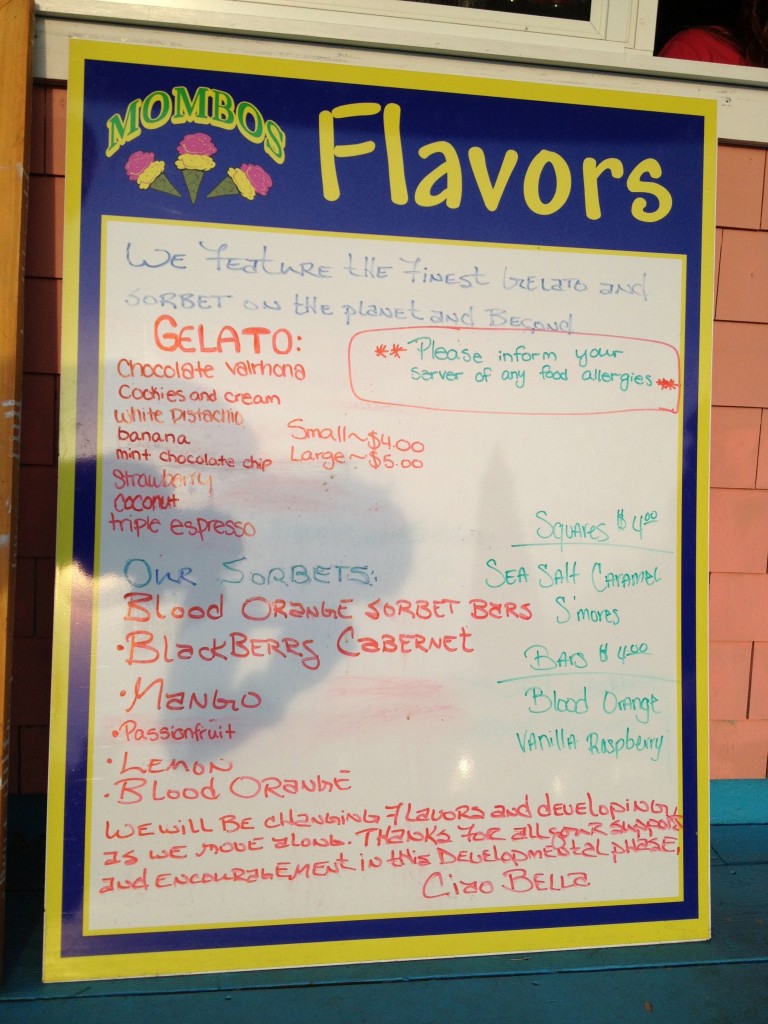 MOMBOS
Flavors
WE FEATURE tHE FINEST GELATO and
SORBET ON tHE planet and BEGOND
GELATO:
** Please inform your
server of any food allergies **
Chocolate valrhona
Cookies and cream
White Pistachio
banana
mint chocolate chip
Strawberry
coconut
triple espresso
Small~$4.00
Large~$5.00
Squares $4.00
SEA Salt CARAMEL
S'mores
BARS $4.00
Blood Orange
VANillA Raspberry
OUR SORBETS:
Blood ORANGE SORBET BARS
• BlackBERRY CABERNET
• MANGO
• Passionfruit
• LEMON
• Blood ORANGE
WE WILL BE CHANGING FLAVORS and dEVELOPING
as WE MOVE alONG. THANKS FOR all YOUR SUPPORT
and ENCOURAGEMENT in this DEVElopmental phase,
Ciao BElla